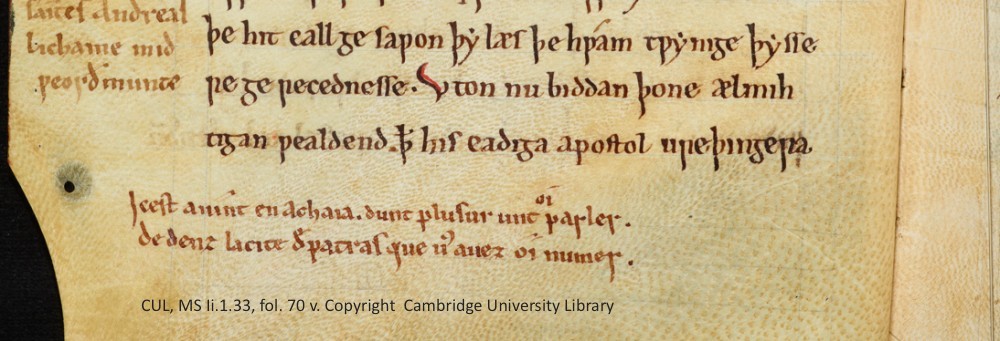 saites Andreal
lichame mid
peordmunte
þe hit eall ge sapon þẏ læs þe hƿám tƿẏnige þẏsse
re ge reccednesse. Uton nu biddan þone ælmih
tigan ƿealdend. ꝥ his eadiga apostol ure þingere
Icest auint en Achaia. dunt plusur unt oi parler.
de denz la cite de patras que uus auez oi numer.
CUL, MS Ii.1.33, fol. 70 v. Copyright Cambridge University Library